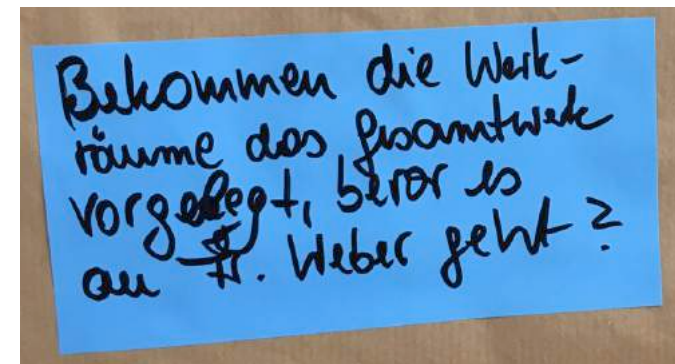 Bekommen die Werk-
räume das Gesamtwerk
vorgelegt, bevor es
an Fr. Weber geht?